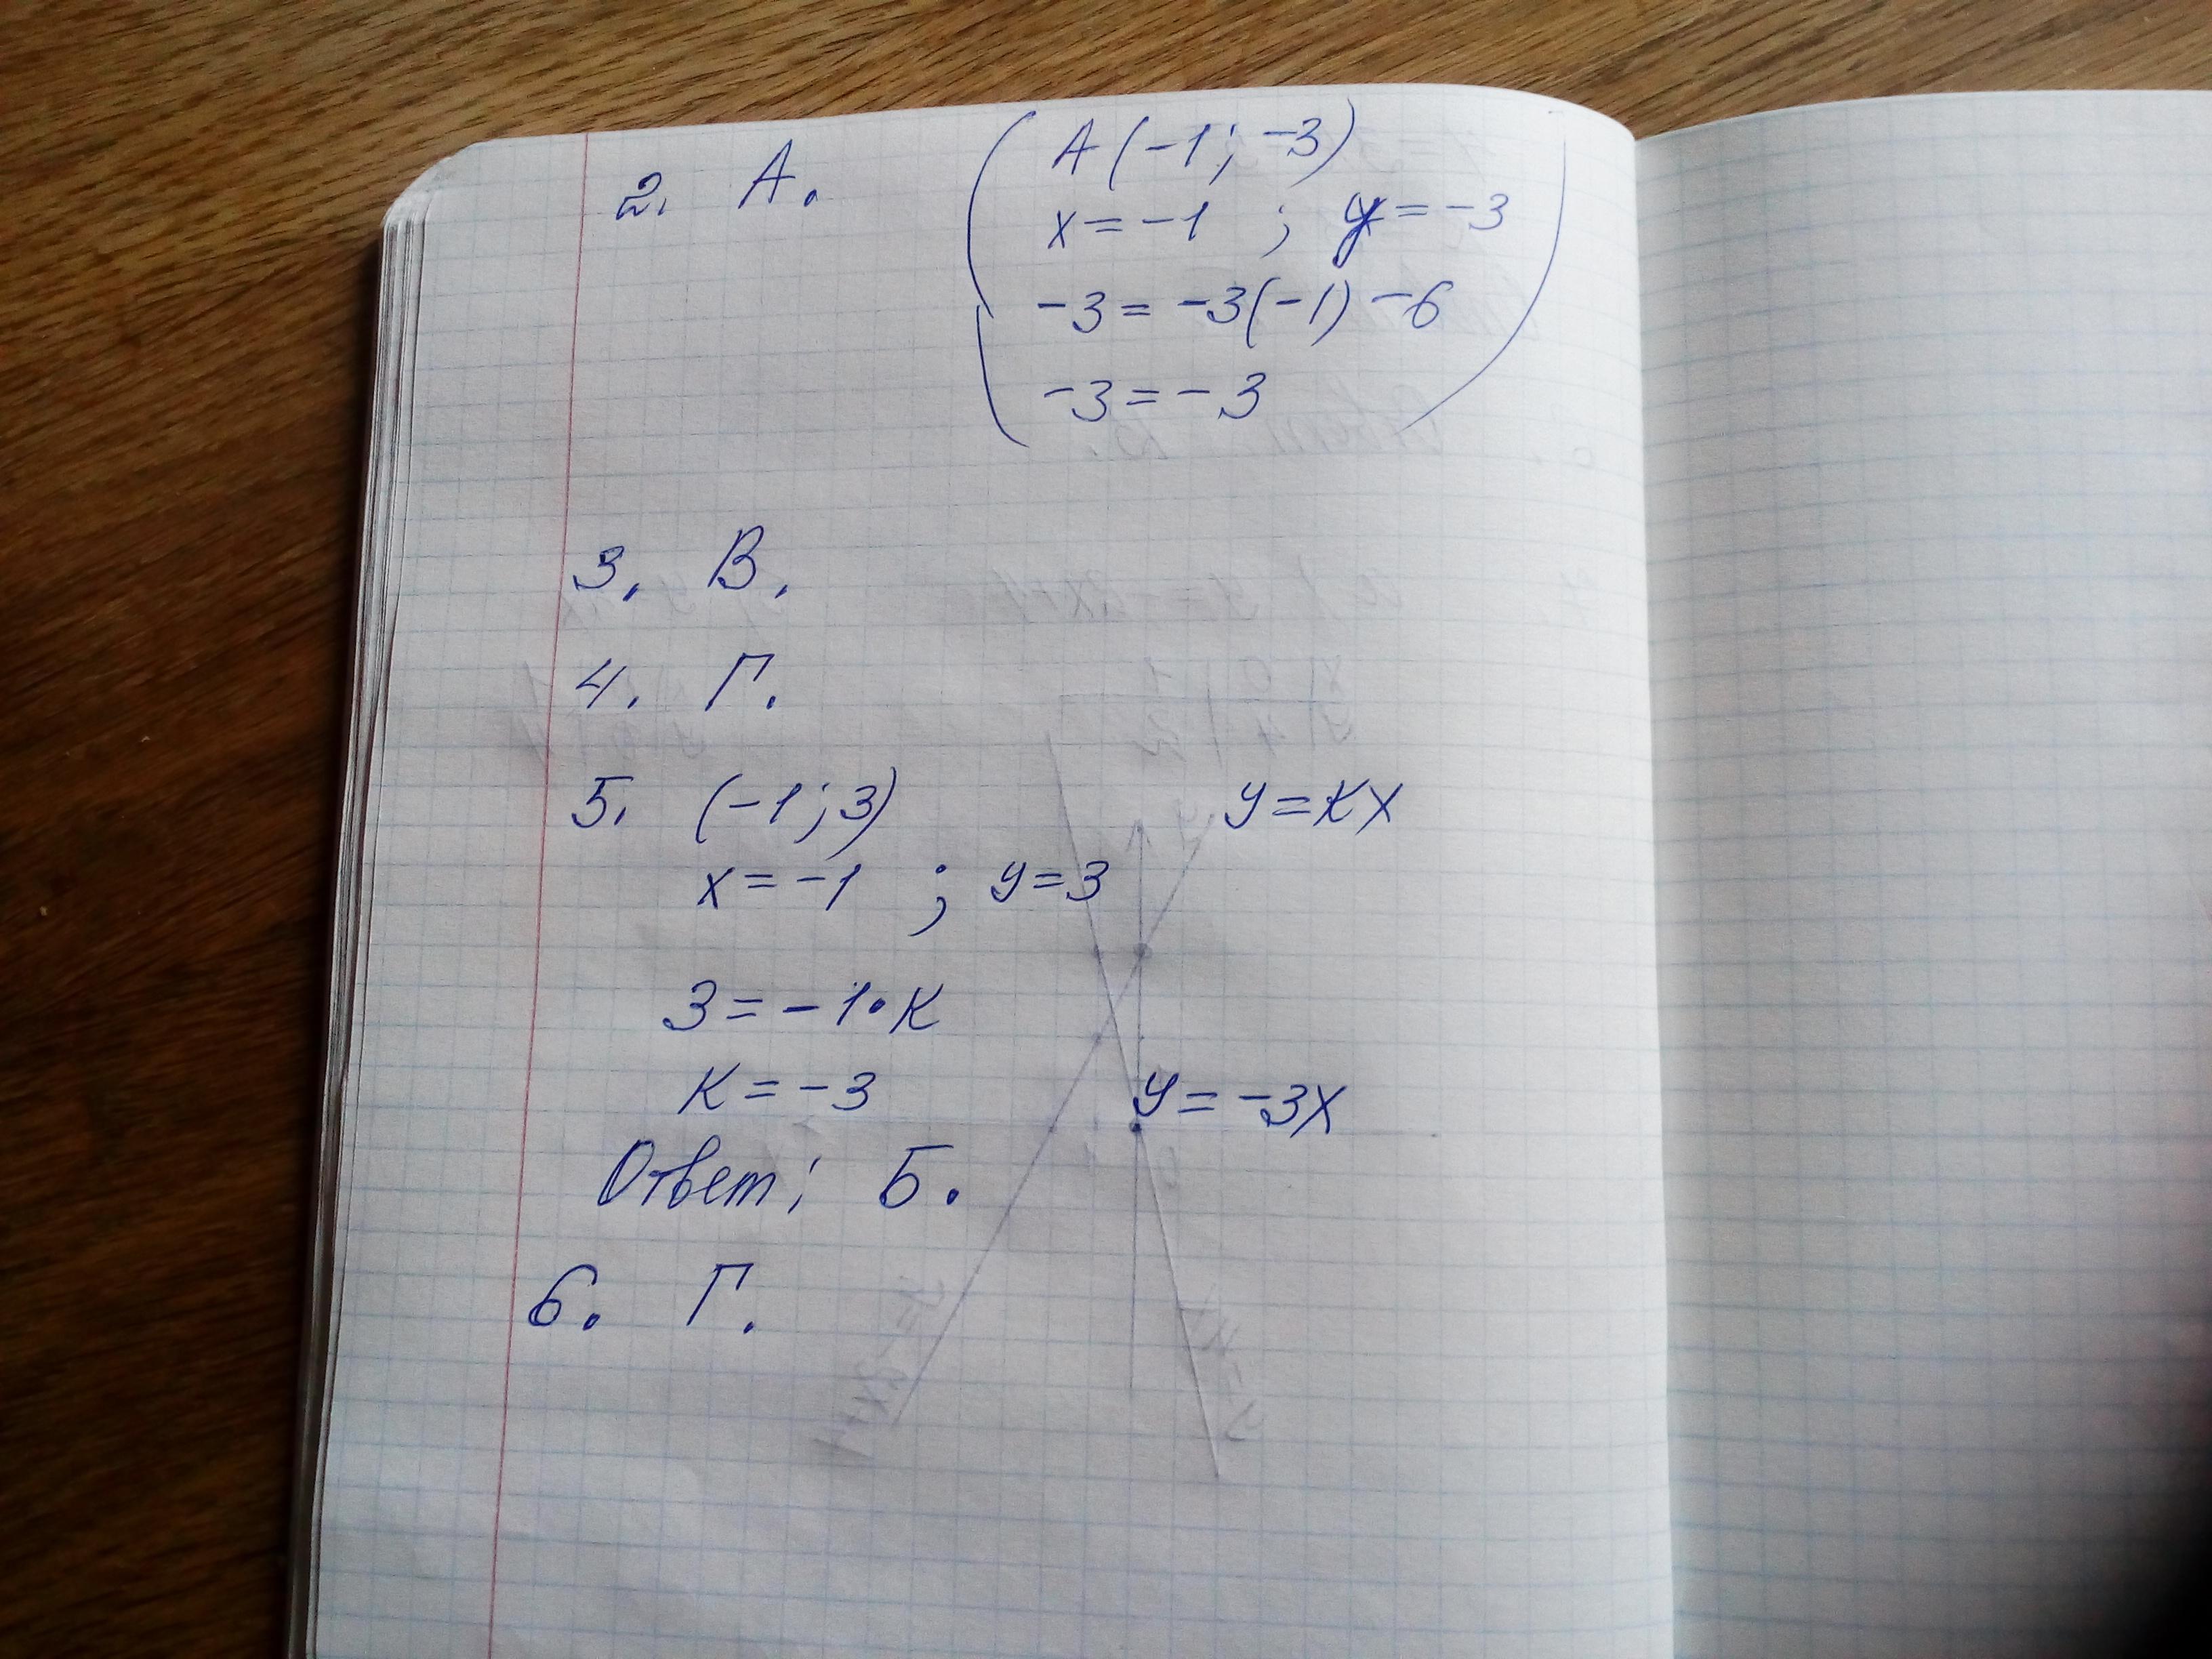 2. А. ( А(-1; -3)
x = -1 ; y = -3
-3 = -3(-1) -6
-3 = -3 )
3. В.
4. Г.
5. (-1; 3) y = kx
x = -1 ; y = 3
3 = -1 · k
k = -3 y = -3x
Ответ: Б.
6. Г.